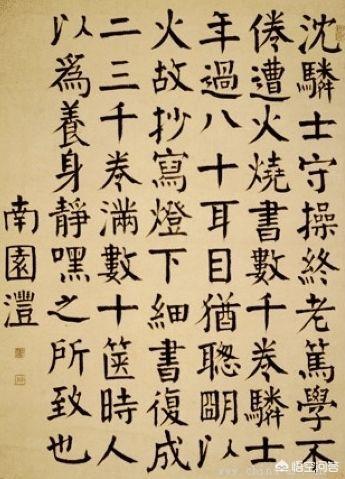 沈驎士守操終老篤學不
倦遭火燒書數千卷驎士
年過八十耳目猶聰明以
火故抄寫燈下細書復成
二三千卷滿數十篋時人
以爲養身靜嘿之所致也
南園灃
悟空问答